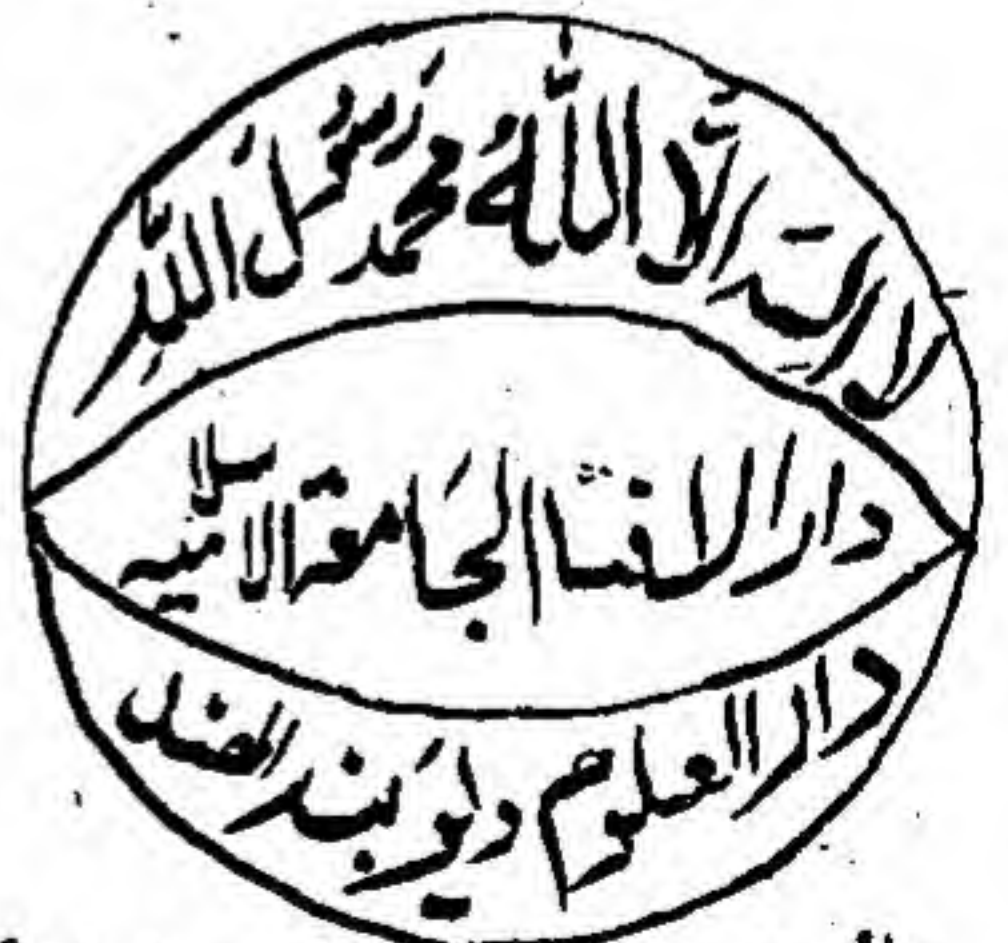 لا الہ الا اللہ محمد رسول اللہ
دار الافتا الجامعة الاسلامیہ
دار العلوم دیوبند الھند